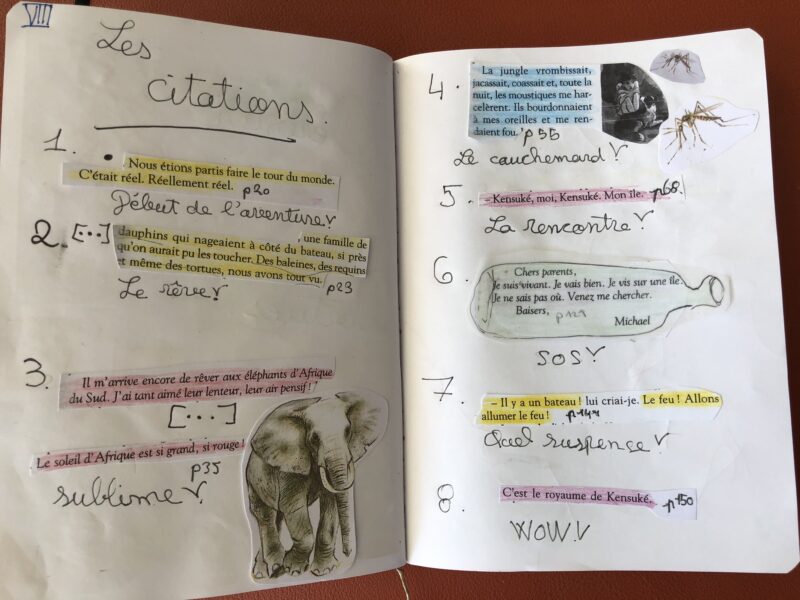 VIII
Les
citations.
1.
• Nous étions partis faire le tour du monde.
C'était réel. Réellement réel. p20
Début de l'aventure!
2. [...] , une famille de
dauphins qui nageaient à côté du bateau, si près
qu'on aurait pu les toucher. Des baleines, des requins
et même des tortues, nous avons tout vu. p23
Le rêve!
3.
Il m'arrive encore de rêver aux éléphants d'Afrique
du Sud. J'ai tant aimé leur lenteur, leur air pensif !
[...]
Le soleil d'Afrique est si grand, si rouge !
p35
sublime!
4.
La jungle vrombissait,
jacassait, coassait et, toute la
nuit, les moustiques me har-
celèrent. Ils bourdonnaient
à mes oreilles et me ren-
daient fou. p55
Le cauchemard!
5. – Kensuké, moi, Kensuké. Mon île. p68.
La rencontre!
6.
Chers parents,
Je suis vivant. Je vais bien. Je vis sur une île.
Je ne sais pas où. Venez me chercher.
Baisers, p129
Michael
SOS!
7.
– Il y a un bateau ! lui criai-je. Le feu ! Allons
allumer le feu !
Quel suspense!
8.
C'est le royaume de Kensuké. p150
WOW!